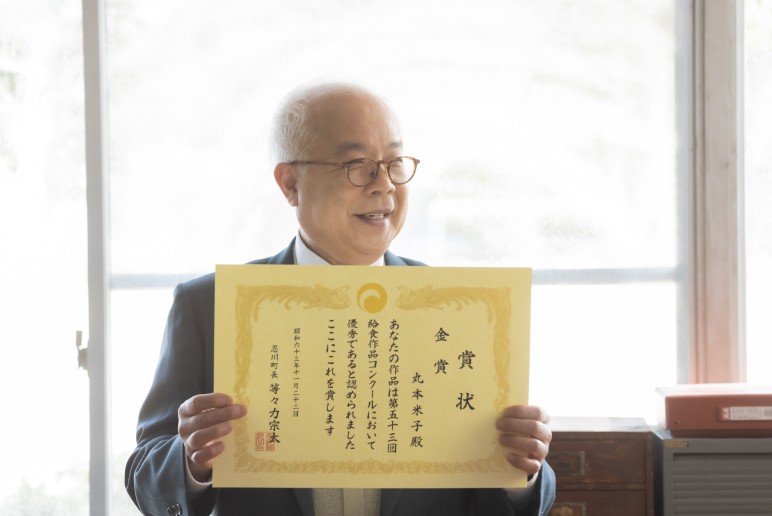 賞状
金賞
丸本米子殿
あなたの作品は第五十三回
給食作品コンクールにおいて
優秀であると認められました
ここにこれを賞します
昭和六十三年十一月二十二日
忍川町長 等々力宗太